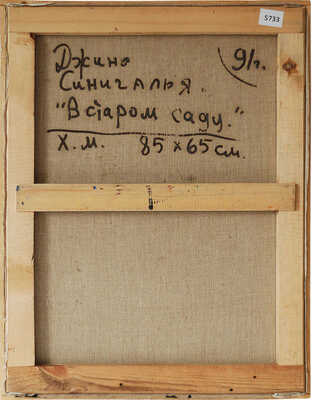 5733
Джино 91г.
Синигалья.
"В старом саду."
Х.м. 85 х 65 см.